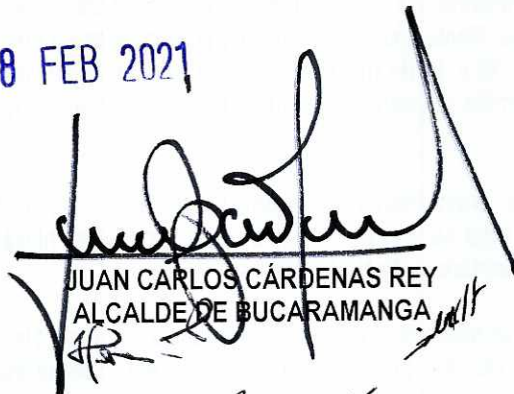 8 FEB 2021
JUAN CARLOS CÁRDENAS REY
ALCALDE DE BUCARAMANGA